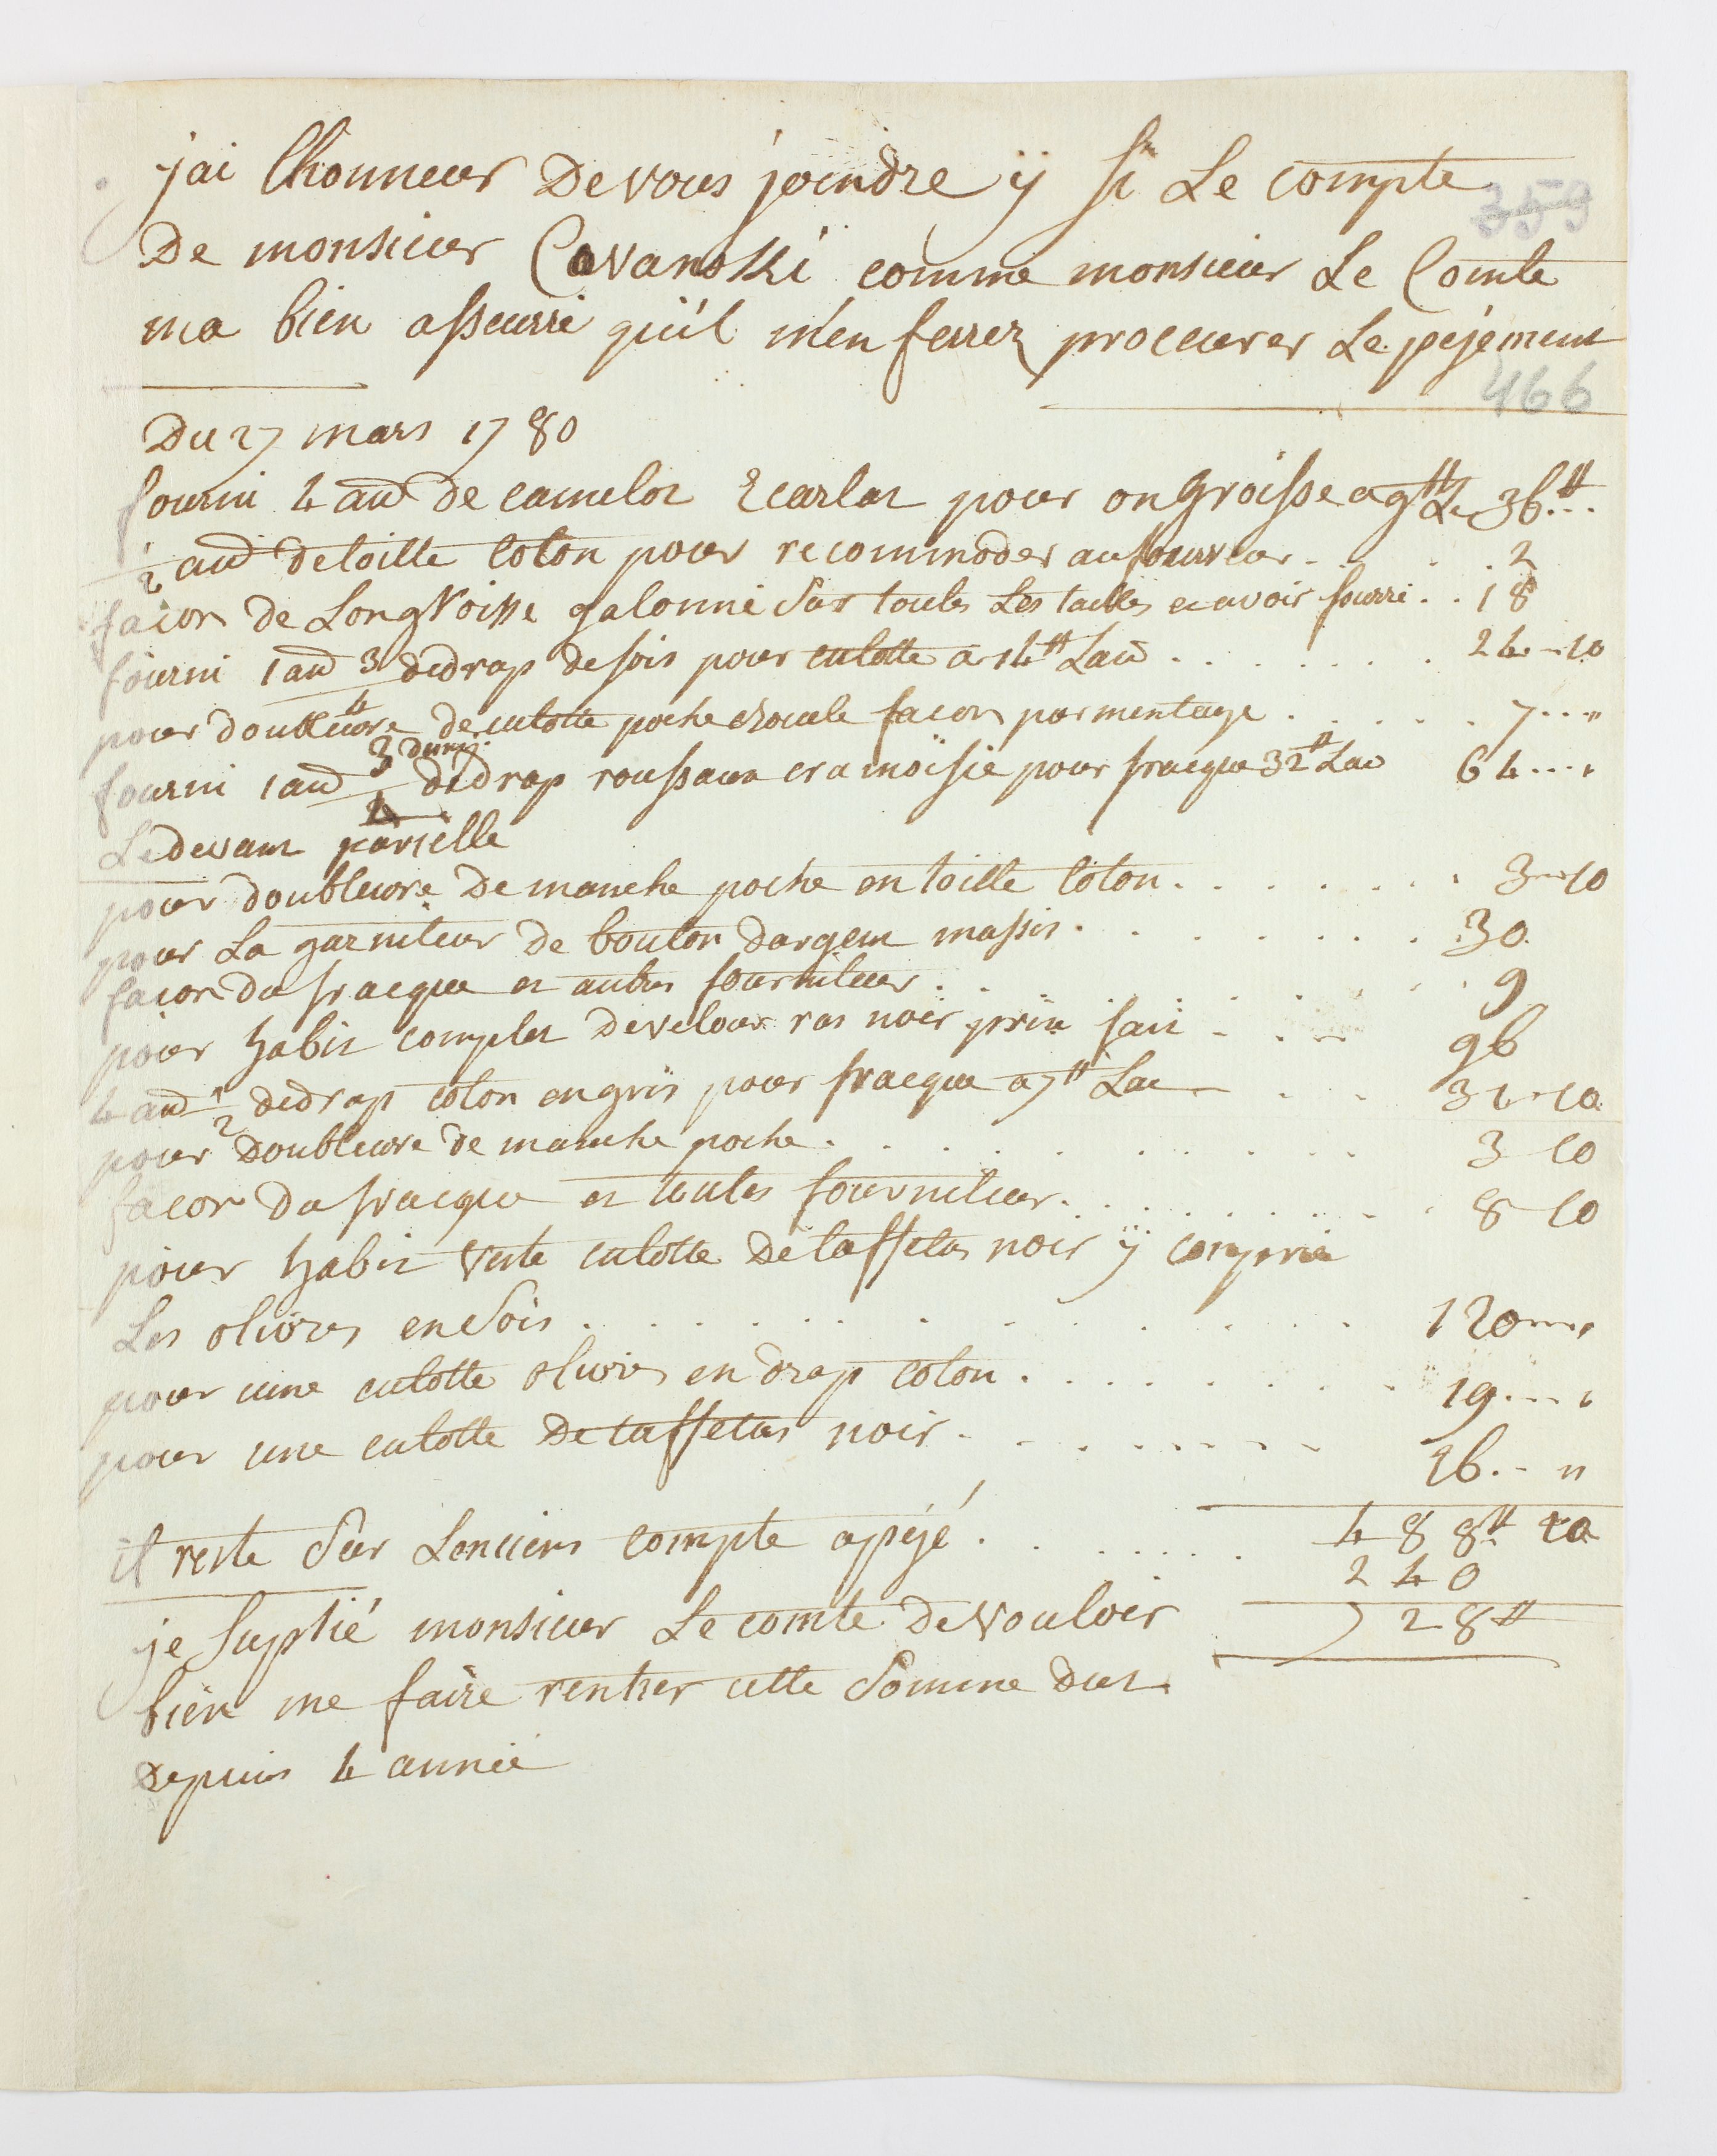 jai lhonneur De vous joindre ÿ si Le compte
359
De monsieur Cavanoski comme monsieur Le Comte
ma bien asseurré qu'il m'en ferrez proccurer Le pejement
466
Du 27 mars 1780
fourni 4 aud de camelot Ecarlat pour ongroisse a 9tt L 36tt...
1/2 aud de toille coton pour recommoder au fourreur . . . 2
facon de LongVoisse galonné Sur toutes Les tailles et avoir fourré . . 18
fourni 1 aud 3/4 de drap de sois pour culotte a 14tt Lau . . . . . . . 24 - 10
pour doubleure de culotte poche boucle facon parmentage . . . . . 7 . . "
fourni 1 aud 3/4 de drap roussaux cramoisie pour fracque 32tt Lau 64 . . .
Le devant
pour doubleure De manche poche en toille coton . . . . . . . 3 - 10
pour La garniteur De bouton dargent massis . . . . . . . 30
facon du fracque et autres fourniteur . . . . . . 9
pour habit complet De velour ras noir prix fait - . . . 96
4 aud 1/2 de drap coton en gris pour fracque a 7tt Lau - . . 31 - 10
pour Doubleure de manche poche . . . . . . . . . 3 10
facon du fracque et toutes fourniteur . . . . . . . . 8 10
pour habit veste culotte De taffetas noir ÿ comprie
Les olivres en Sois . . . . . . . . . . . . 120 . . . .
pour une culotte olivres en drap coton . . . . . . . . 19 . . . .
pour une culotte De taffetas noir - . . . . . . . 16 . - "
488tt 10
il reste Sur Lenciens compte apejé . . . . . . . 240
728tt
je Suplié monsieur Le comte De vouloir
bien me faire rentrer cette Somme due
Depuis 4 année